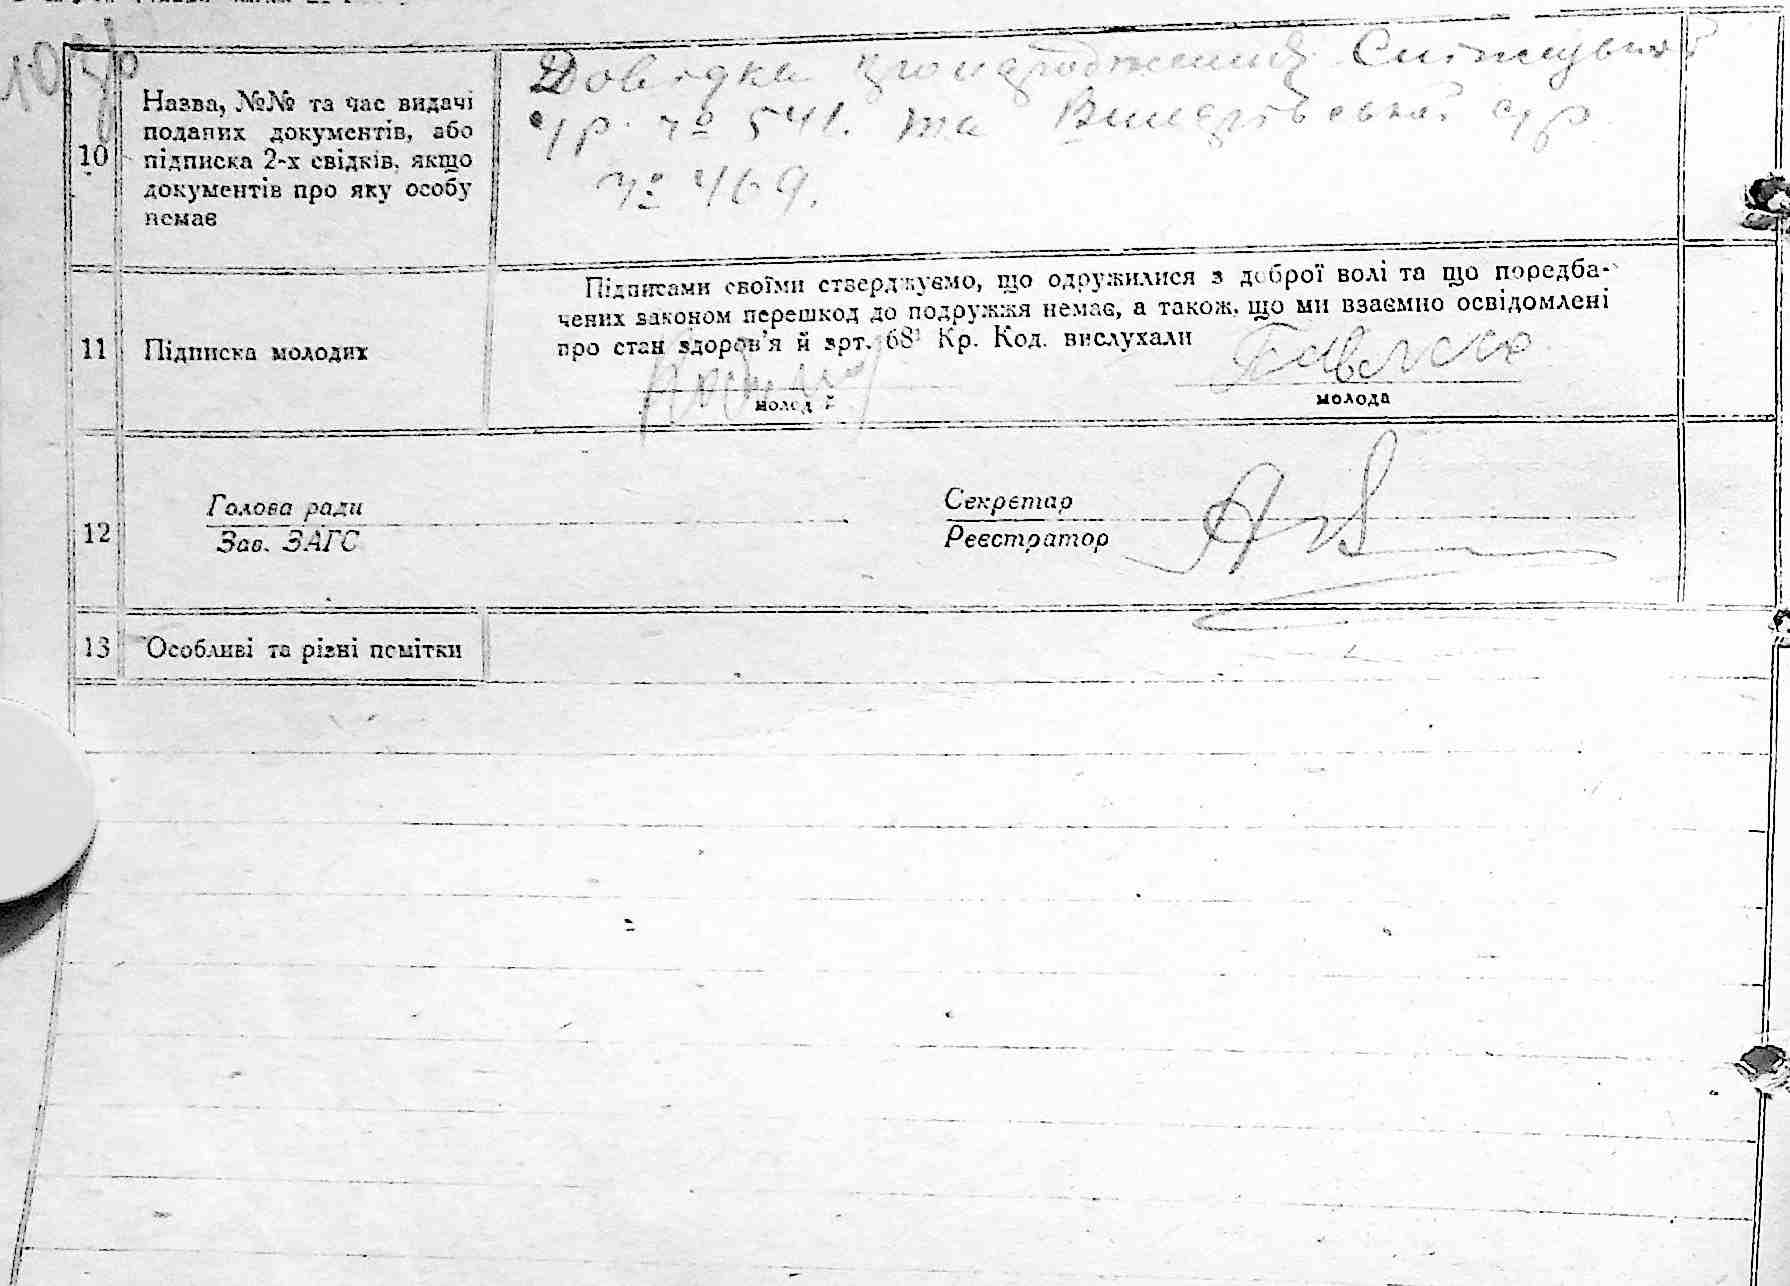 10
Назва, №№ та час видачі
поданих документів, або
підписка 2-х свідків, якщо
документів про яку особу
немає
Довідка
с/р. № 541. та с/р
№ 469.
11
Підписка молодих
Підписами своїми стверджуємо, що одружилися з доброї волі та що поредба-
чених законом перешкод до подружжя немає, а також, що ми взаємно освідомлені
про стан здоров'я й арт. 68¹ Кр. Код. вислухали
молодий
молода
12
Голова ради
Зав. ЗАГС
Секретар
Реєстратор
13
Особливі та різні помітки